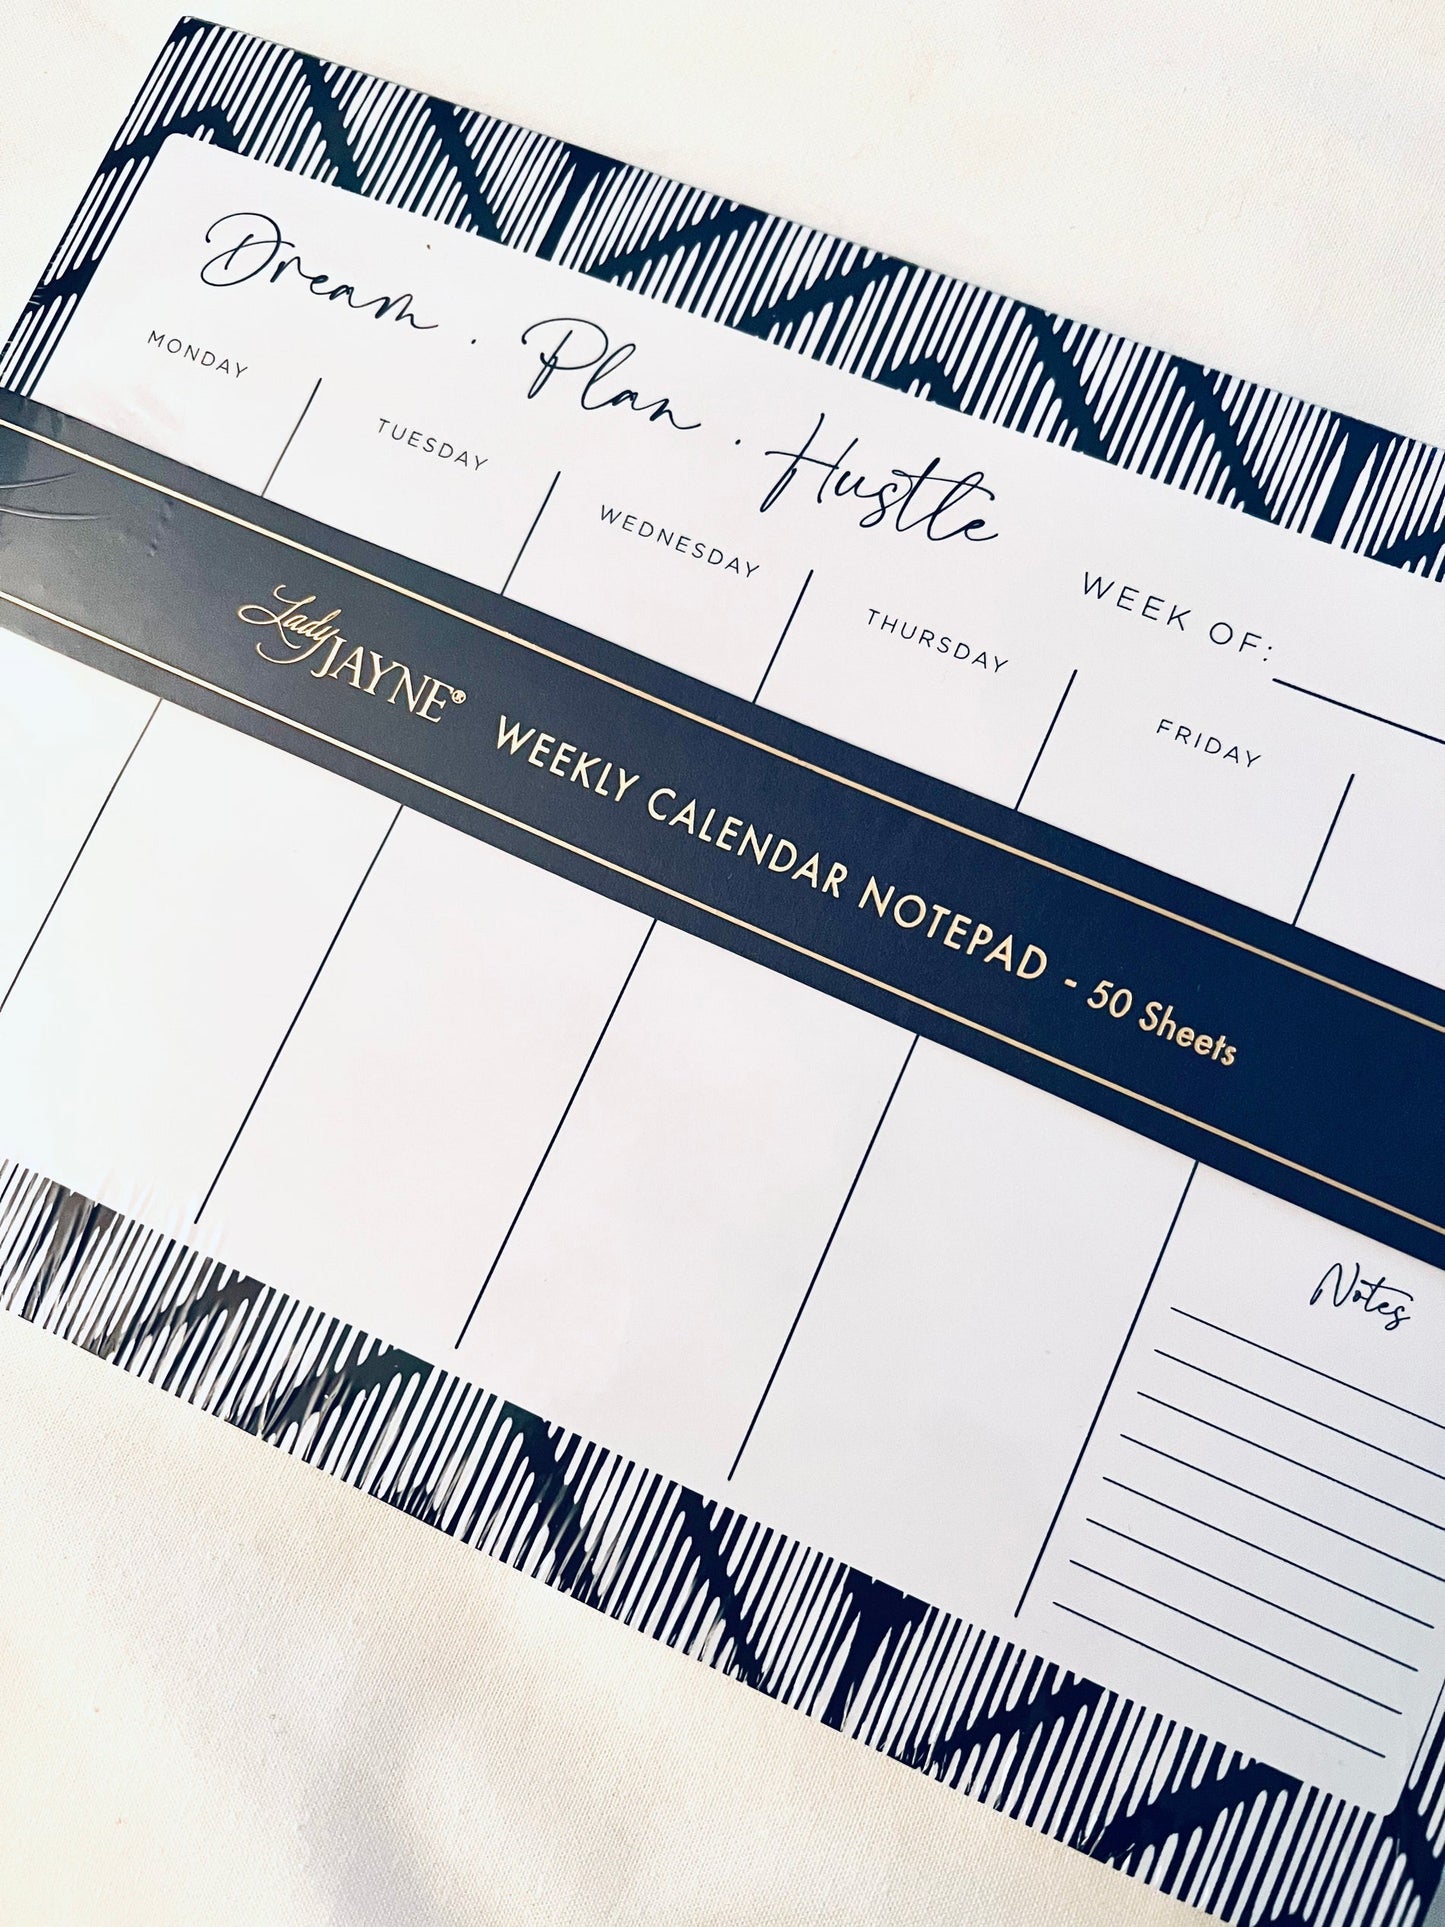 Dream . Plan . Hustle
WEEK OF:
MONDAY
TUESDAY
WEDNESDAY
THURSDAY
FRIDAY
Lady JAYNE® WEEKLY CALENDAR NOTEPAD - 50 Sheets
Notes